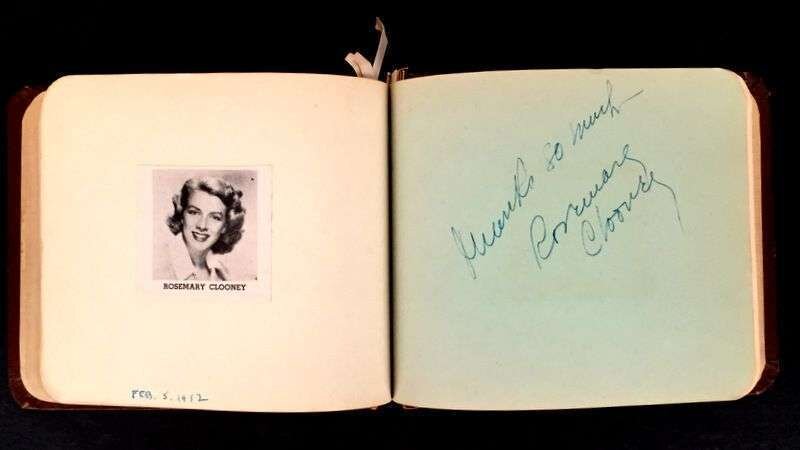 ROSEMARY CLOONEY
FEB. 5. 1952
Thanks so much
Rosemary
Clooney